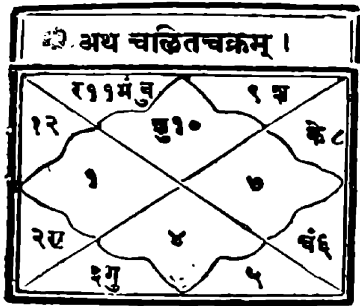 अथ चलितचक्रम् ।
र११मं बु
९ श
१२
शु१०
के ८
१
७
२रा
४
चं६
३गु
५